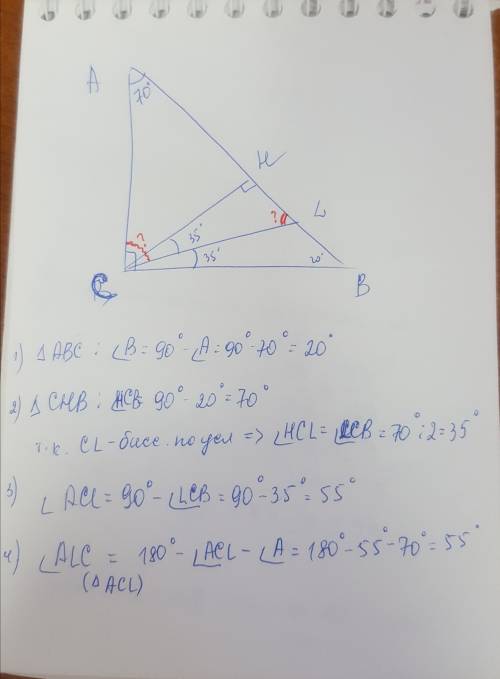 A
70°
H
L
?
?
35°
35°
20°
C
B
1) △ABC: ∠B = 90° - ∠A = 90° - 70° = 20°
2) △CHB: HCB = 90° - 20° = 70°
т.к. CL - бисс. по усл => ∠HCL = ∠LCB = 70° : 2 = 35°
3) ∠ACL = 90° - ∠LCB = 90° - 35° = 55°
4) ∠ALC = 180° - ∠ACL - ∠A = 180° - 55° - 70° = 55°
(△ACL)